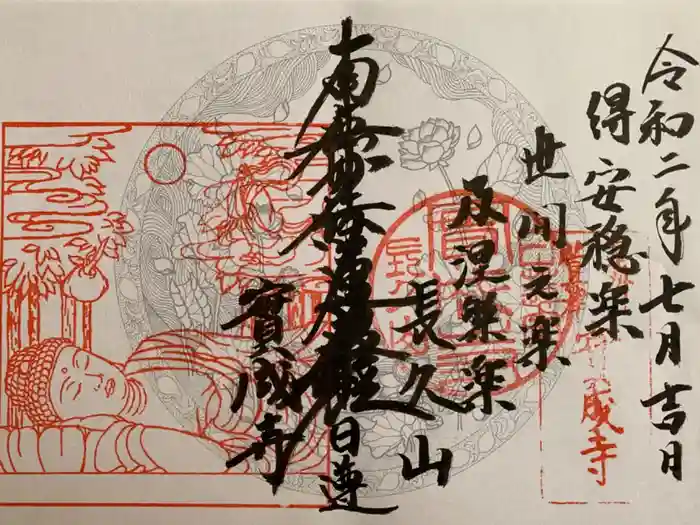 令和二年七月吉日
得安穏楽
世間之楽
及涅槃楽
長久山
南無妙法蓮華経日蓮
寳成寺
成寺